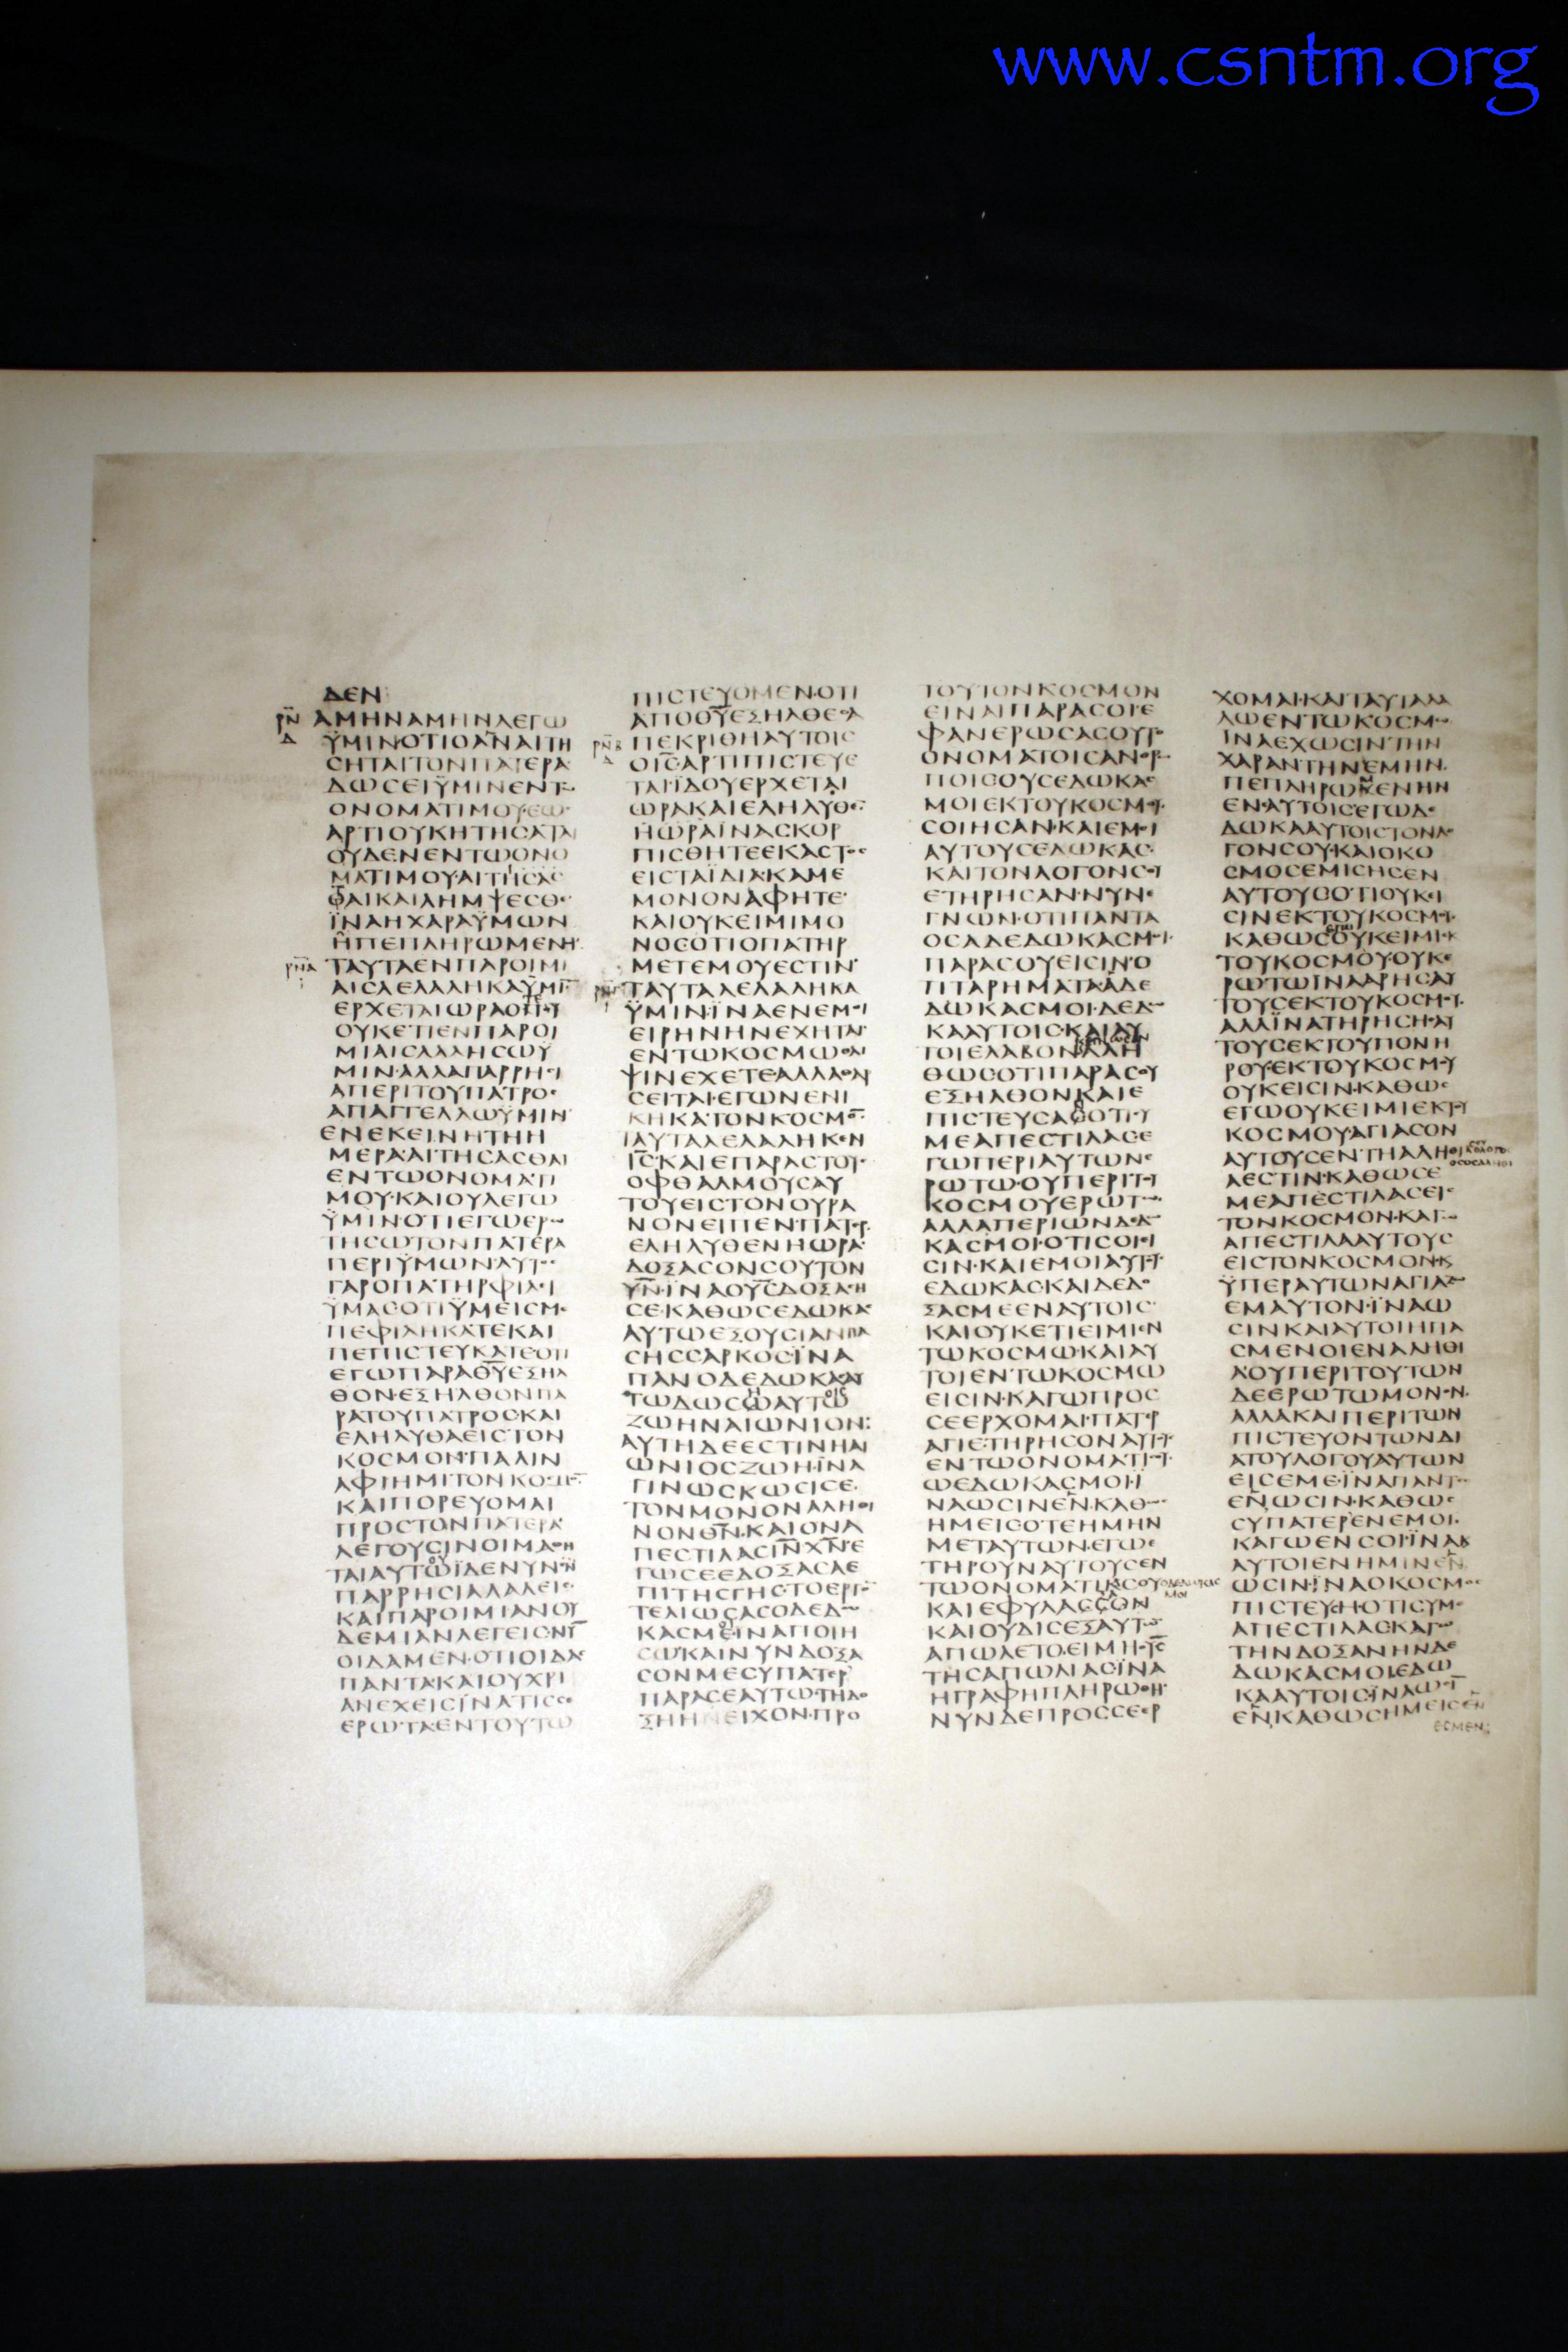 www.csntm.org
ΔΕΝ
ΑΜΗΝΑΜΗΝΛΕΓΩ
ΥΜΙΝΟΤΙΟΑΝΑΙΤΗ
ϹΗΤΑΙΤΟΝΠΑΤΕΡΑ
ΔΩϹΕΙΥΜΙΝΕΝΤ
ΟΝΟΜΑΤΙΜΟΥ·ΕΩ
ΑΡΤΙΟΥΚΗΤΗϹΑΤΑΙ
ΟΥΔΕΝΕΝΤΩΟΝΟ
ΜΑΤΙΜΟΥ·ΑΙΤΗϹΑϹ
ΘΑΙΚΑΙΛΗΜΨΕϹΘΕ
ΙΝΑΗΧΑΡΑΥΜΩΝ
ΗΠΕΠΛΗΡΩΜΕΝΗ
ΤΑΥΤΑΕΝΠΑΡΟΙΜΙ
ΑΙϹΛΕΛΑΛΗΚΑΥΜΙ
ΕΡΧΕΤΑΙΩΡΑΟΤΕ
ΟΥΚΕΤΙΕΝΠΑΡΟΙ
ΜΙΑΙϹΛΑΛΗϹΩΥ
ΜΙΝ·ΑΛΛΑΠΑΡΡΗϹΙ
ΑΠΕΡΙΤΟΥΠΑΤΡΟϹ
ΑΠΑΓΓΕΛΛΩΥΜΙΝ
ΕΝΕΚΕΙΝΗΤΗΗ
ΜΕΡΑ·ΑΙΤΗϹΑϹΘΑΙ
ΕΝΤΩΟΝΟΜΑΤΙ
ΜΟΥ·ΚΑΙΟΥΛΕΓΩ
ΥΜΙΝΟΤΙΕΓΩΕΡΩ
ΤΗϹΩΤΟΝΠΑΤΕΡΑ
ΠΕΡΙΥΜΩΝ·ΑΥΤΟϹ
ΓΑΡΟΠΑΤΗΡΦΙΛΕΙ
ΥΜΑϹΟΤΙΥΜΕΙϹΜΕ
ΠΕΦΙΛΗΚΑΤΕΚΑΙ
ΠΕΠΙϹΤΕΥΚΑΤΕΟΤΙ
ΕΓΩΠΑΡΑΘΥΕΞΗΛ
ΘΟΝ·ΕΞΗΛΘΟΝΠΑ
ΡΑΤΟΥΠΑΤΡΟϹΚΑΙ
ΕΛΗΛΥΘΑΕΙϹΤΟΝ
ΚΟϹΜΟΝ·ΠΑΛΙΝ
ΑΦΙΗΜΙΤΟΝΚΟϹΜΟ
ΚΑΙΠΟΡΕΥΟΜΑΙ
ΠΡΟϹΤΟΝΠΑΤΕΡΑ
ΛΕΓΟΥϹΙΝΟΙΜΑΘΗ
ΤΑΙΑΥΤΩΙΔΕΝΥΝΕΝ
ΠΑΡΡΗϹΙΑΛΑΛΕΙϹ
ΚΑΙΠΑΡΟΙΜΙΑΝΟΥ
ΔΕΜΙΑΝΛΕΓΕΙϹ·ΝΥ
ΟΙΔΑΜΕΝ·ΟΤΙΟΙΔΑϹ
ΠΑΝΤΑ·ΚΑΙΟΥΧΡΙ
ΑΝΕΧΕΙϹΙΝΑΤΙϹϹΕ
ΕΡΩΤΑ·ΕΝΤΟΥΤΩ
ΠΙϹΤΕΥΟΜΕΝ·ΟΤΙ
ΑΠΟΘΥΕΞΗΛΘΕϹΑ
ΠΕΚΡΙΘΗΑΥΤΟΙϹ
ΟΙϹ·ΑΡΤΙΠΙϹΤΕΥΕ
ΤΑΙ·ΙΔΟΥΕΡΧΕΤΑΙ
ΩΡΑΚΑΙΕΛΗΛΥΘΕ
ΗΩΡΑΙΝΑϹΚΟΡ
ΠΙϹΘΗΤΕΕΚΑϹΤΟϹ
ΕΙϹΤΑΙΔΙΑ·ΚΑΜΕ
ΜΟΝΟΝΑΦΗΤΕ·
ΚΑΙΟΥΚΕΙΜΙΜΟ
ΝΟϹΟΤΙΟΠΑΤΗΡ
ΜΕΤΕΜΟΥΕϹΤΙΝ
ΤΑΥΤΑΛΕΛΑΛΗΚΑ
ΥΜΙΝ·ΙΝΑΕΝΕΜΟΙ
ΕΙΡΗΝΗΝΕΧΗΤΑΙ
ΕΝΤΩΚΟϹΜΩΘΛΙ
ΨΙΝΕΧΕΤΕ·ΑΛΛΑΘΑΝ
ϹΕΙΤΑΙ·ΕΓΩΝΕΝΙ
ΚΗΚΑΤΟΝΚΟϹΜΟ
ΤΑΥΤΑΛΕΛΑΛΗΚΕΝ
ΙϹ·ΚΑΙΕΠΑΡΑϹΤΟΥϹ
ΟΦΘΑΛΜΟΥϹΑΥ
ΤΟΥΕΙϹΤΟΝΟΥΡΑ
ΝΟΝΕΙΠΕΝ·ΠΑΤΕΡ
ΕΛΗΛΥΘΕΝΗΩΡΑ·
ΔΟΞΑϹΟΝϹΟΥΤΟΝ
ΥΝ·ΙΝΑΟΥϹΔΟΞΑϹΗ
ϹΕ·ΚΑΘΩϹΕΔΩΚΑϹ
ΑΥΤΩΕΞΟΥϹΙΑΝΠΑ
ϹΗϹϹΑΡΚΟϹΙΝΑ
ΠΑΝΟΔΕΔΩΚΑϹΑΥ
ΤΩΔΩϹΩΑΥΤΩ
ΖΩΗΝΑΙΩΝΙΟΝ:
ΑΥΤΗΔΕΕϹΤΙΝΗΑΙ
ΩΝΙΟϹΖΩΗ·ΙΝΑ
ΓΙΝΩϹΚΩϹΙϹΕ
ΤΟΝΜΟΝΟΝΑΛΗΘΙ
ΝΟΝΘΝ·ΚΑΙΟΝΑ
ΠΕϹΤΙΛΑϹΙΝΧΝ·Ε
ΓΩϹΕΕΔΟΞΑϹΑΕ
ΠΙΤΗϹΓΗϹ·ΤΟΕΡΓΟ
ΤΕΛΙΩϹΑϹΟΔΕΔΩ
ΚΑϹΜΕ·ΙΝΑΠΟΙΗ
ϹΩ·ΚΑΙΝΥΝΔΟΞΑ
ϹΟΝΜΕϹΥΠΑΤΕΡ
ΠΑΡΑϹΕΑΥΤΩ·ΤΗΔΟ
ΞΗΗΝΕΙΧΟΝ·ΠΡΟ
ΤΟΥΤΟΝΚΟϹΜΟΝ
ΕΙΝΑΙΠΑΡΑϹΟΙ·Ε
ΦΑΝΕΡΩϹΑϹΟΥΤΟ
ΟΝΟΜΑΤΟΙϹΑΝΘΡΩ
ΠΟΙϹΟΥϹΕΔΩΚΑϹ
ΜΟΙΕΚΤΟΥΚΟϹΜΟΥ·
ϹΟΙΗϹΑΝ·ΚΑΙΕΜΟΙ
ΑΥΤΟΥϹΕΔΩΚΑϹ·
ΚΑΙΤΟΝΛΟΓΟΝϹΟΥ
ΕΤΗΡΗϹΑΝ·ΝΥΝΕ
ΓΝΩΝ·ΟΤΙΠΑΝΤΑ
ΟϹΑΔΕΔΩΚΑϹΜΟΙ·
ΠΑΡΑϹΟΥΕΙϹΙΝ·Ο
ΤΙΤΑΡΗΜΑΤΑΑΔΕ
ΔΩΚΑϹΜΟΙ·ΔΕΔΩ
ΚΑΑΥΤΟΙϹ·ΚΑΙΑΥ
ΤΟΙΕΛΑΒΟΝΑΛΗ
ΘΩϹΟΤΙΠΑΡΑϹΟΥ
ΕΞΗΛΘΟΝΚΑΙΕ
ΠΙϹΤΕΥϹΑΟΤΙϹΥ
ΜΕΑΠΕϹΤΙΛΑϹΕ
ΓΩΠΕΡΙΑΥΤΩΝΕ
ΡΩΤΩ·ΟΥΠΕΡΙΤΟΥ
ΚΟϹΜΟΥΕΡΩΤΩ
ΑΛΛΑΠΕΡΙΩΝΔΕΔΩ
ΚΑϹΜΟΙ·ΟΤΙϹΟΙΕΙ
ϹΙΝ·ΚΑΙΕΜΟΙΑΥΤΟΥ
ΕΔΩΚΑϹ·ΚΑΙΔΕΔΟ
ΞΑϹΜΕΕΝΑΥΤΟΙϹ
ΚΑΙΟΥΚΕΤΙΕΙΜΙΕΝ
ΤΩΚΟϹΜΩΚΑΙΑΥ
ΤΟΙΕΝΤΩΚΟϹΜΩ
ΕΙϹΙΝ·ΚΑΓΩΠΡΟϹ
ϹΕΕΡΧΟΜΑΙ·ΠΑΤΕΡ
ΑΓΙΕ·ΤΗΡΗϹΟΝΑΥΤΟΥ
ΕΝΤΩΟΝΟΜΑΤΙϹΟΥ
ΩΕΔΩΚΑϹΜΟΙ·Ι
ΝΑΩϹΙΝΕΝ·ΚΑΘΩϹ
ΗΜΕΙϹΟΤΕΗΜΗΝ
ΜΕΤΑΥΤΩΝ·ΕΓΩΕ
ΤΗΡΟΥΝΑΥΤΟΥϹΕΝ
ΤΩΟΝΟΜΑΤΙϹΟΥ
ΚΑΙΕΦΥΛΑϹϹΟΝ
ΚΑΙΟΥΔΙϹΕΞΑΥΤΩ
ΑΠΩΛΕΤΟ·ΕΙΜΗΟΥϹ
ΤΗϹΑΠΩΛΙΑϹ·ΙΝΑ
ΗΓΡΑΦΗΠΛΗΡΩΘΗ·
ΝΥΝΔΕΠΡΟϹϹΕΕΡ
ΧΟΜΑΙ·ΚΑΙΤΑΥΤΑΛΑ
ΛΩΕΝΤΩΚΟϹΜΩ
ΙΝΑΕΧΩϹΙΝΤΗΝ
ΧΑΡΑΝΤΗΝΕΜΗΝ·
ΠΕΠΛΗΡΩΜΕΝΗΝ
ΕΝ·ΑΥΤΟΙϹΕΓΩΔΕ
ΔΩΚΑΑΥΤΟΙϹΤΟΝΛΟ
ΓΟΝϹΟΥ·ΚΑΙΟΚΟ
ϹΜΟϹΕΜΙϹΗϹΕΝ
ΑΥΤΟΥϹΟΤΙΟΥΚΕΙ
ϹΙΝΕΚΤΟΥΚΟϹΜΟΥ·
ΚΑΘΩϹΟΥΚΕΙΜΙΕΚ
ΤΟΥΚΟϹΜΟΥ·ΟΥΚΕ
ΡΩΤΩΙΝΑΑΡΗϹΑΥ
ΤΟΥϹΕΚΤΟΥΚΟϹΜΟΥ·
ΑΛΛΙΝΑΤΗΡΗϹΗϹΑΥ
ΤΟΥϹΕΚΤΟΥΠΟΝΗ
ΡΟΥ·ΕΚΤΟΥΚΟϹΜΟΥ
ΟΥΚΕΙϹΙΝ·ΚΑΘΩϹ
ΕΓΩΟΥΚΕΙΜΙΕΚΤΟΥ
ΚΟϹΜΟΥ·ΑΓΙΑϹΟΝ
ΑΥΤΟΥϹΕΝΤΗΑΛΗΘΙ
ΑΕϹΤΙΝ·ΚΑΘΩϹΕ
ΜΕΑΠΕϹΤΙΛΑϹΕΙϹ
ΤΟΝΚΟϹΜΟΝ·ΚΑΓΩ
ΑΠΕϹΤΙΛΑΑΥΤΟΥϹ
ΕΙϹΤΟΝΚΟϹΜΟΝ·Κ
ΥΠΕΡΑΥΤΩΝΑΓΙΑΖΩ
ΕΜΑΥΤΟΝ·ΙΝΑΩ
ϹΙΝΚΑΙΑΥΤΟΙΗΓΙΑ
ϹΜΕΝΟΙΕΝΑΛΗΘΙ
Α·ΟΥΠΕΡΙΤΟΥΤΩΝ
ΔΕΕΡΩΤΩΜΟΝΟΝ·
ΑΛΛΑΚΑΙΠΕΡΙΤΩΝ
ΠΙϹΤΕΥΟΝΤΩΝΔΙ
ΑΤΟΥΛΟΓΟΥΑΥΤΩΝ
ΕΙϹΕΜΕ·ΙΝΑΠΑΝΤΕϹ
ΕΝΩϹΙΝ·ΚΑΘΩϹ
ϹΥΠΑΤΕΡΕΝΕΜΟΙ·
ΚΑΓΩΕΝϹΟΙ·ΙΝΑΚ
ΑΥΤΟΙΕΝΗΜΙΝΕΝ
ΩϹΙΝ·ΙΝΑΟΚΟϹΜΟϹ
ΠΙϹΤΕΥΗ·ΟΤΙϹΥΜΕ
ΑΠΕϹΤΙΛΑϹΚΑΓΩ
ΤΗΝΔΟΞΑΝΗΝΔΕ
ΔΩΚΑϹΜΟΙ·ΕΔΩ
ΚΑΑΥΤΟΙϹΙΝΑΩϹΙ
ΕΝ·ΚΑΘΩϹΗΜΕΙϹΕΝ
ΕϹΜΕΝ: